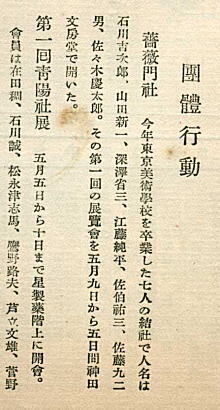 團體行動
薔薇門社　今年東京美術學校を卒業した七人の結社で人名は
石川吉次郎、山田新一、深澤省三、江藤純平、佐伯祐三、佐藤九二
男、佐々木慶太郎。その第一回の展覽會を五月九日から五日間神田
文房堂で開いた。
第一回青陽社展　五月五日から十日まで星製藥階上に開會。
會員は在田稠、石川誠、松永津志馬、鷹野路夫、芦立文雄、菅野